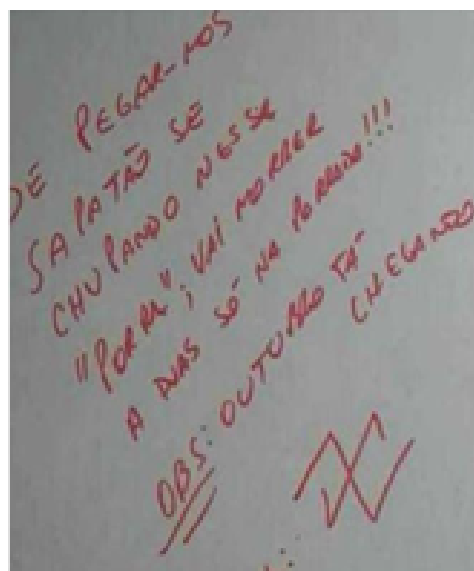 DE PEGAR-MOS
SAPATÃO SE
CHUPANDO NESSA
"PORRA"; VAI MORRER
A DUAS SÓ NA PORRADA!!!
OBS: OUTUBRO TÁ
CHEGANDO